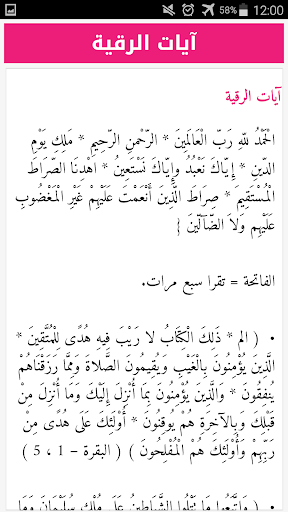 58% 12:00
آيات الرقية
آيات الرقية
الْحَمْدُ للّهِ رَبِّ الْعَالَمِينَ * الرَّحْمنِ الرَّحِيمِ * مَلِكِ يَوْمِ
الدِّينِ * إِيَّاكَ نَعْبُدُ وإِيَّاكَ نَسْتَعِينُ * اهْدِنَا الصِّرَاطَ
الْمُسْتَقِيمَ * صِرَاطَ الَّذِينَ أَنْعَمْتَ عَلَيْهِمْ غَيْرِ الْمَغْضُوبِ
عَلَيْهِمْ وَلاَ الضَّآلِّينَ {
الفاتحة = تقرا سبع مرات.
• ( الم * ذَلِكَ الْكِتَابُ لا رَيْبَ فِيهِ هُدًى لِلْمُتَّقِينَ *
الَّذِينَ يُؤْمِنُونَ بِالْغَيْبِ وَيُقِيمُونَ الصَّلاةَ وَمِمَّا رَزَقْنَاهُمْ
يُنفِقُونَ * وَالَّذِينَ يُؤْمِنُونَ بِمَا أُنْزِلَ إِلَيْكَ وَمَا أُنْزِلَ مِنْ
قَبْلِكَ وَبِالآخِرَةِ هُمْ يُوقِنُونَ * أُوْلَئِكَ عَلَى هُدًى مِنْ
رَبِّهِمْ وَأُوْلَئِكَ هُمْ الْمُفْلِحُونَ ) ( البقرة - 1 ، 5 )
• ( وَاتَّبَعُوا مَا تَتْلُوا الشَّيَاطِينُ عَلَى مُلْكِ سُلَيْمَانَ وَمَا